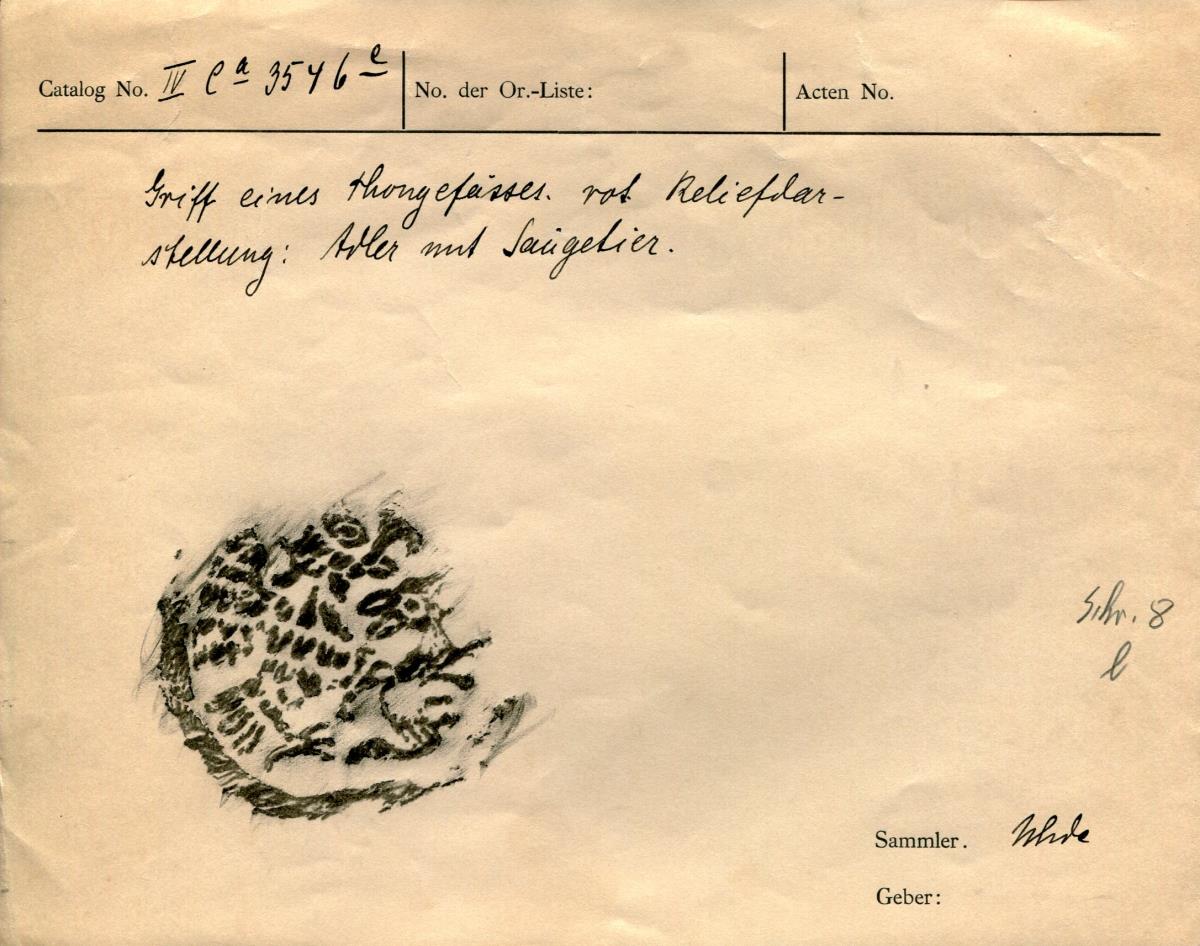 Catalog No. IV Ca 3546 e
No. der Or.-Liste:
Acten No.
Griff eines Thongefässes. rot Reliefdar-
stellung: Adler mit Saügetier.
Schr. 8
l
Sammler. Uhde
Geber: